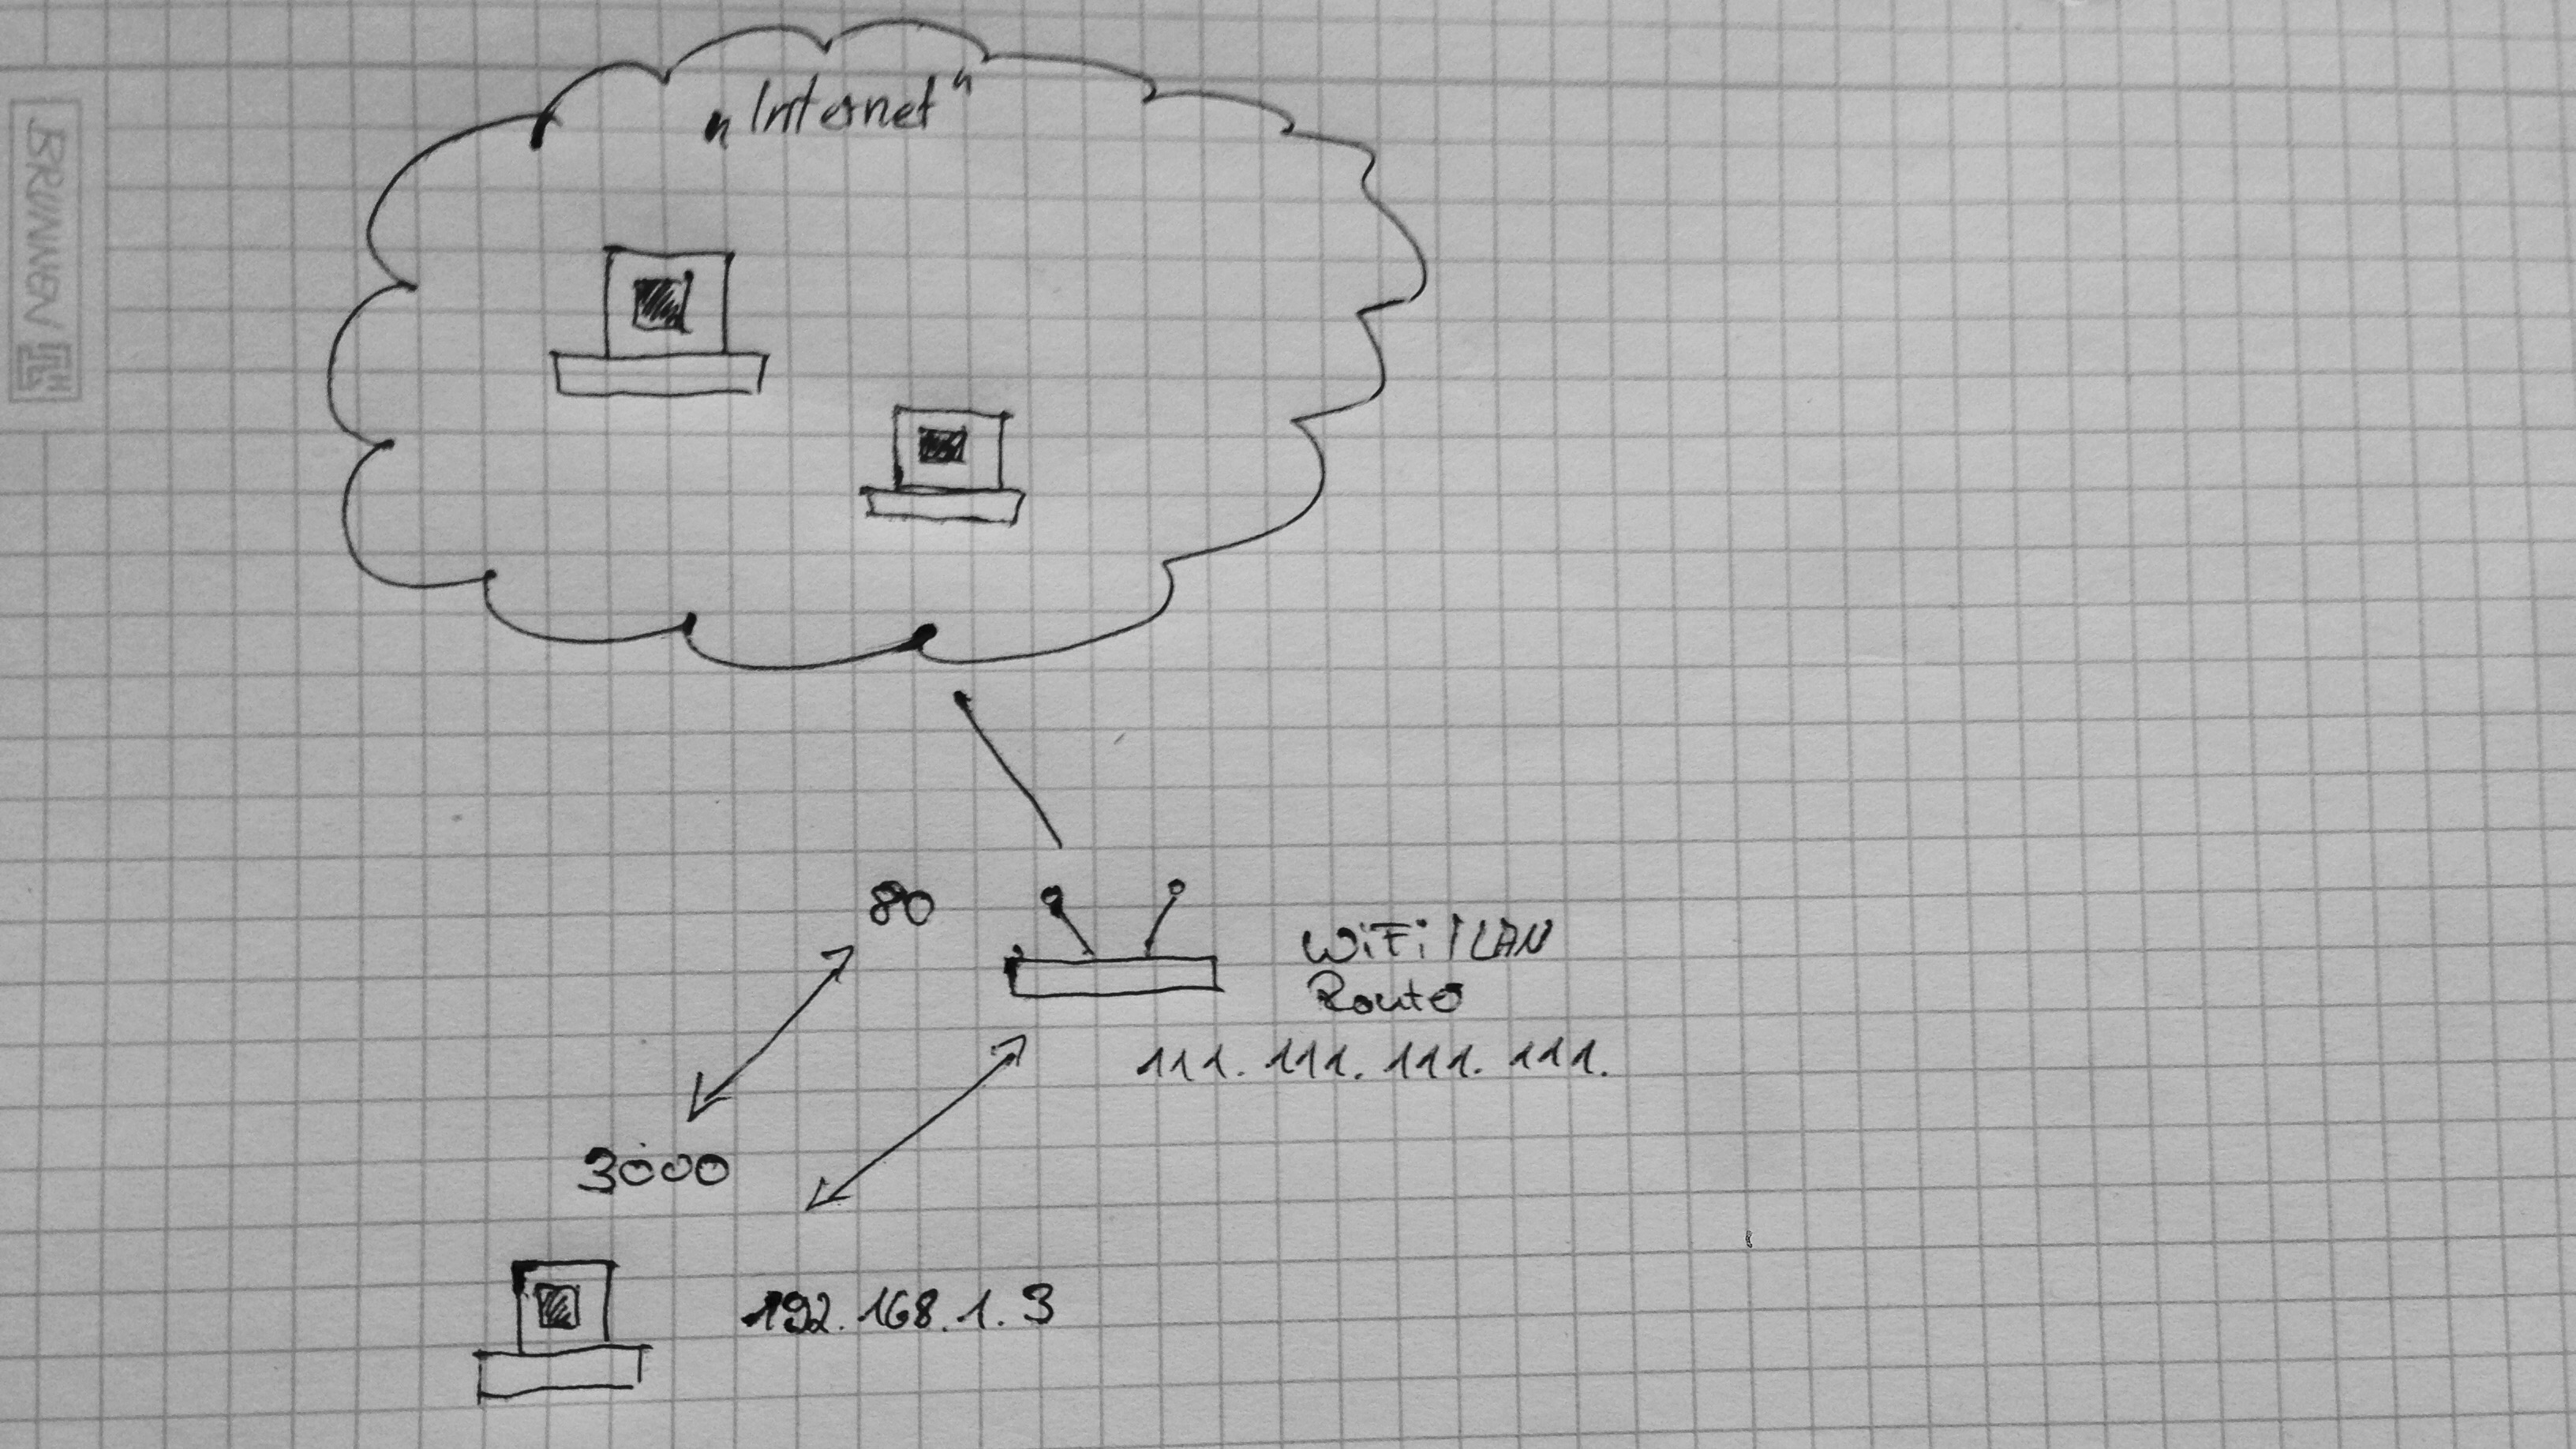 BRUNNEN
„Internet"
80
WiFi / LAN
Router
111. 111. 111. 111.
3000
192.168.1.3